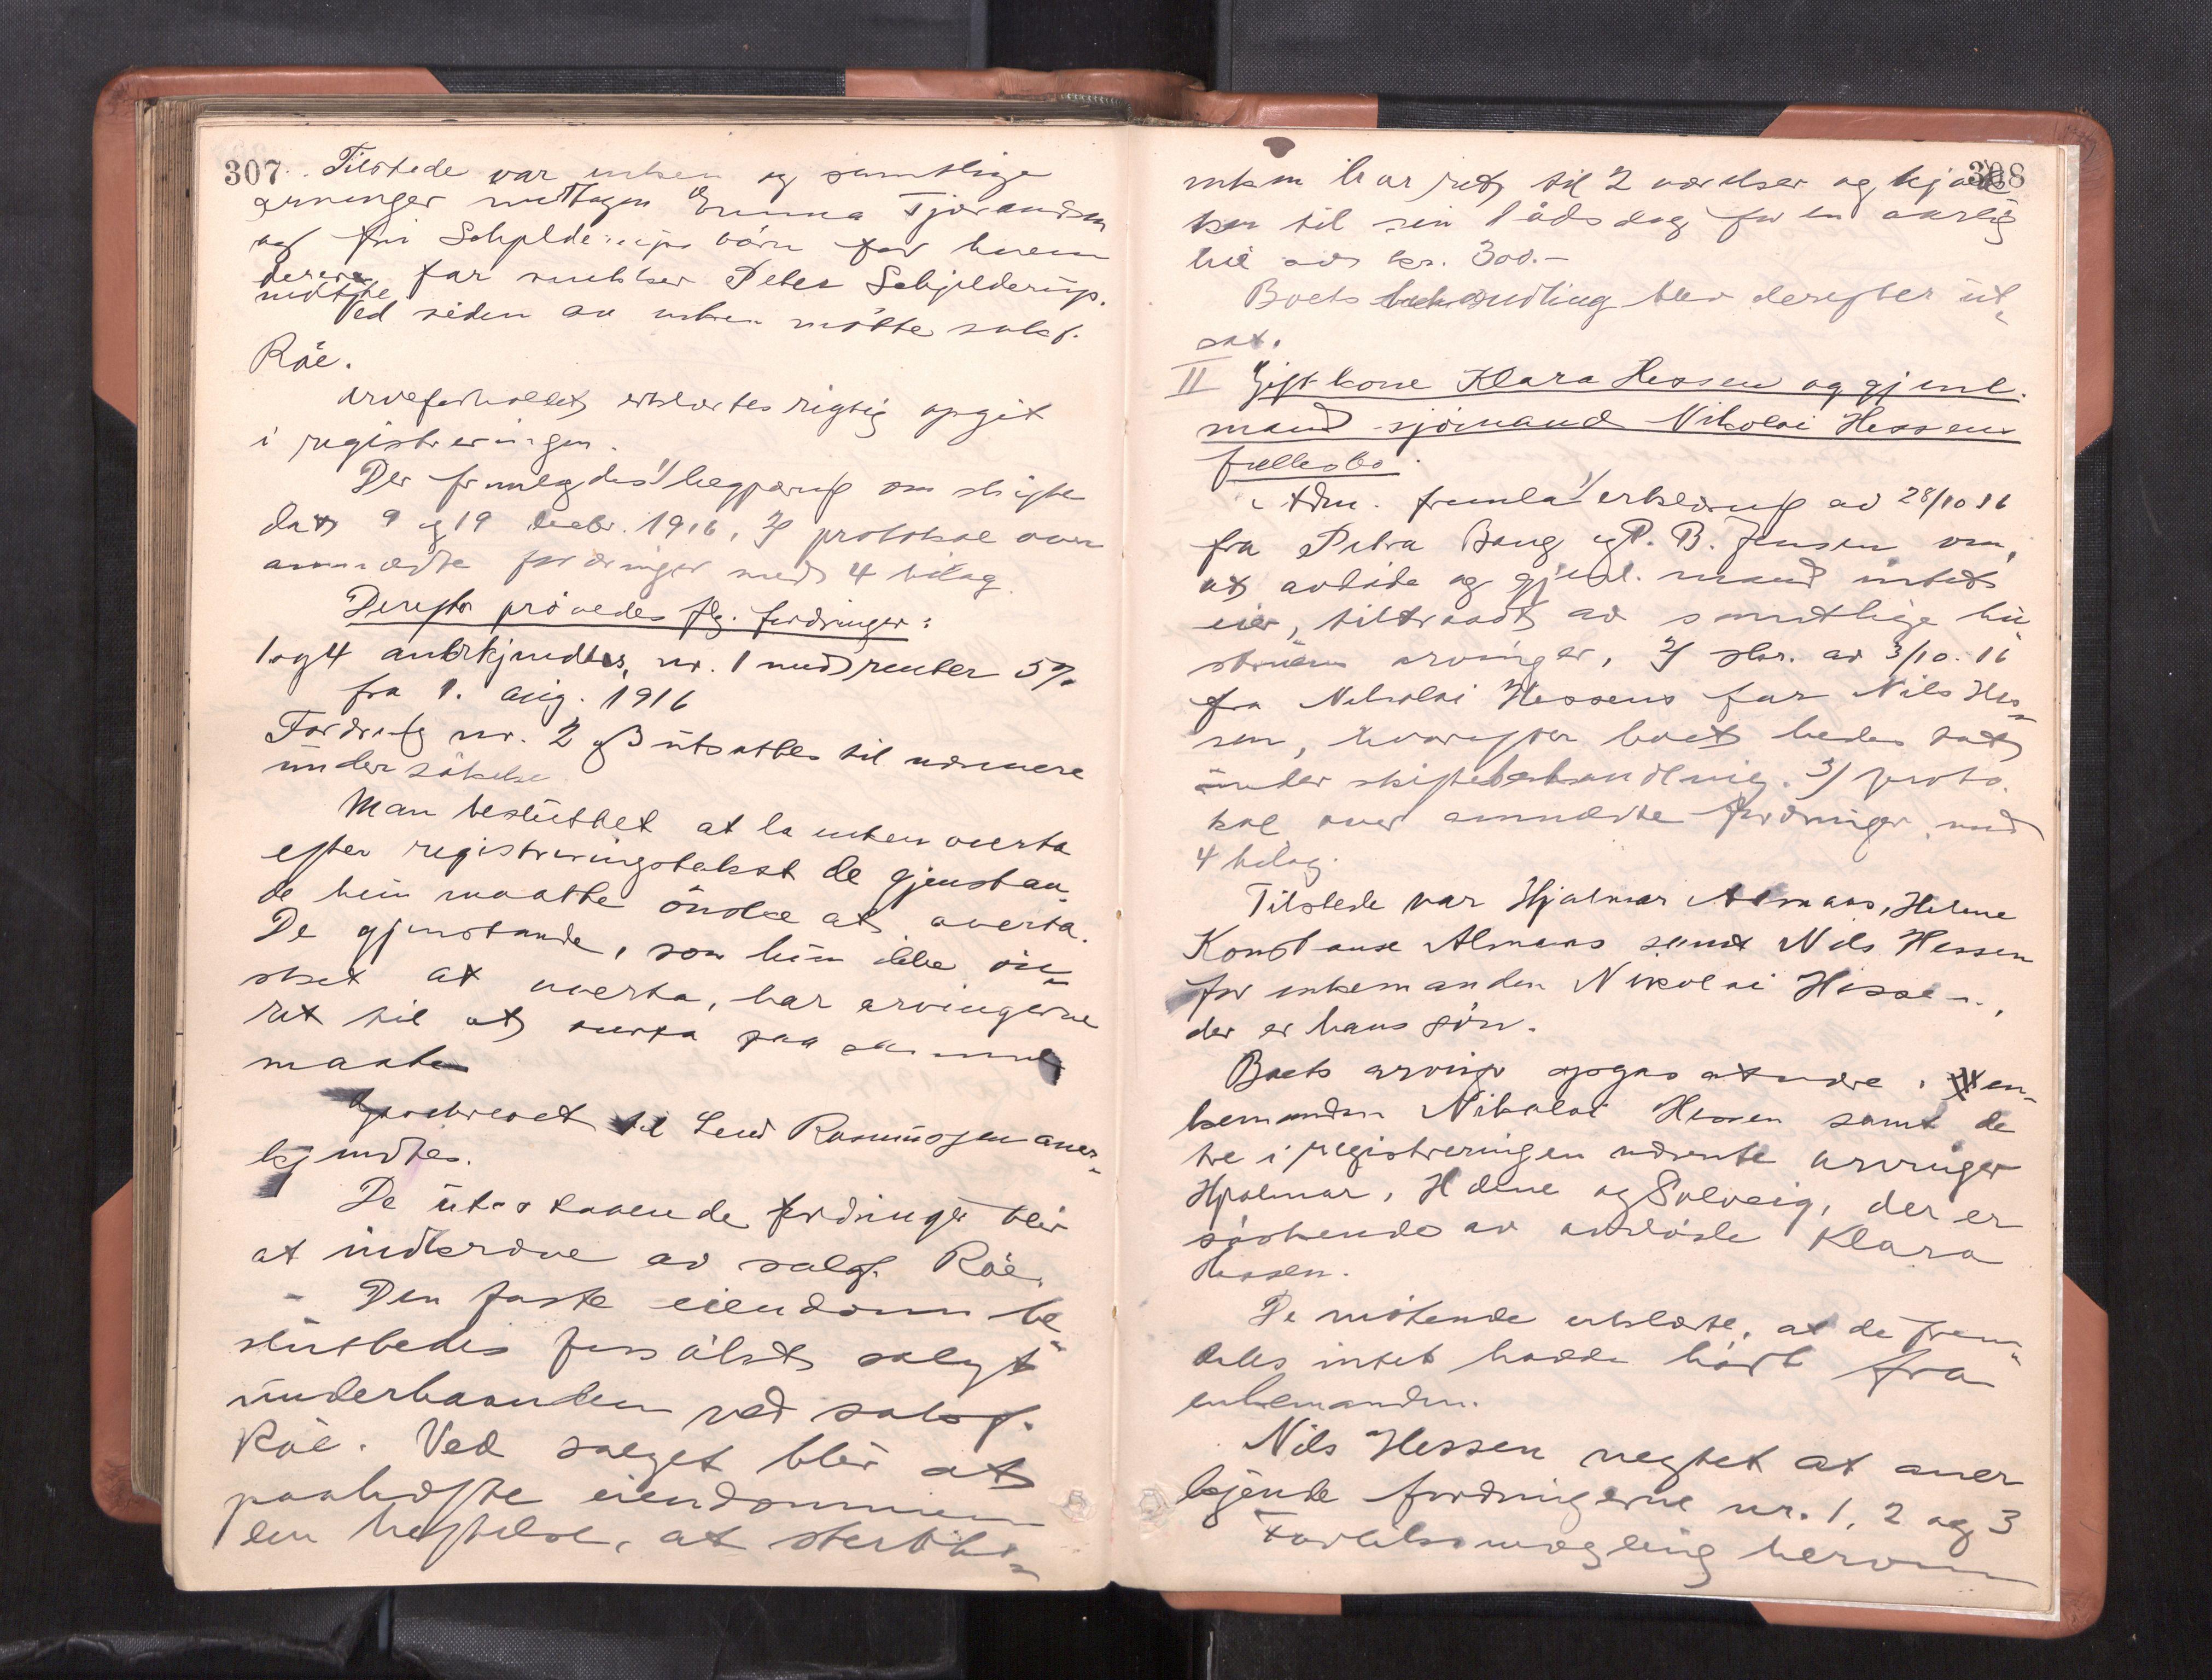 307. Tilstede var enken og samtlige
arvinger undtagen Emma Tjørandsen
og fru Schjelderups børn for hvem
deres far snekker Peter Schjelderup
møtte
Ved siden av enken møtte saksf.
Röe.
Arveforholdet erklærtes rigtig opgit
i registreringen.
Der fremlagdes 1/ begjæring om skifte
dat. 9 og 19 decbr. 1916, 2/ protokol over
anmeldte fordringer med 4 bilag.
Derefter prövedes flg. fordringer:
1 og 4 anerkjendtes, nr. 1 med renter 5%
fra 1. aug. 1916
Fordring nr. 2 og 3 utsattes til nærmere
undersökelse
Man besluttet at la enken overta
efter registreringstakst de gjenstan-
de hun maatte önske at overta.
De gjenstande, som hun ikke ön-
sket at overta, har arvingerne
ret til at overta paa samme
maate
Gjældsbrevet til Rasmussen aner-
kjendtes.
De utestaaende fordringer blir
at indkræve av saksf. Röe.
Den faste eiendom be-
sluttedes forsökt solgt
underhaanden ved saksf.
Röe. Ved salget blir at
paahefte eiendommen
den heftelse, at sterkbo-
308
enken har ret til 2 værelser og kjøk-
ken til sin dödsdag for en aarlig
leie av kr. 300.-
Boets behandling blev derefter ut-
sat.
II Gift kone Klara Hessen og gjenl.
mand sjömand Nikolai Hessens
fællesbo.
Adm. fremla 1/ erklæring av 28/10 16
fra Petra Bang og P. B. Jensen om,
at avdöde og gjenl. mand intet
eier, tiltraadt av samtlige hu-
struens arvinger, 2/ skr. av 3/10. 16
fra Nikolai Hessens far Nils Hes-
sen, hvorefter boet bedes tat
under skiftebehandling. 3/ proto-
kol over anmeldte fordringer med
4 bilag.
Tilstede var Hjalmar Almaas, Helene
Konstanse Almaas samt Nils Hessen
for enkemanden Nikolai Hessen,
der er hans sön.
Boets arvinger opgas at være, en-
kemanden Nikolai Hessen samt de
tre i registreringen nævnte arvinger
Hjalmar, Helene og Solveig, der er
söskende av avdöde Klara
Hessen.
De mötende erklærte, at de frem-
deles intet hadde hört fra
enkemanden.
Nils Hessen negtet at aner
kjende fordringerne nr. 1, 2 og 3
Forliksmægling herom